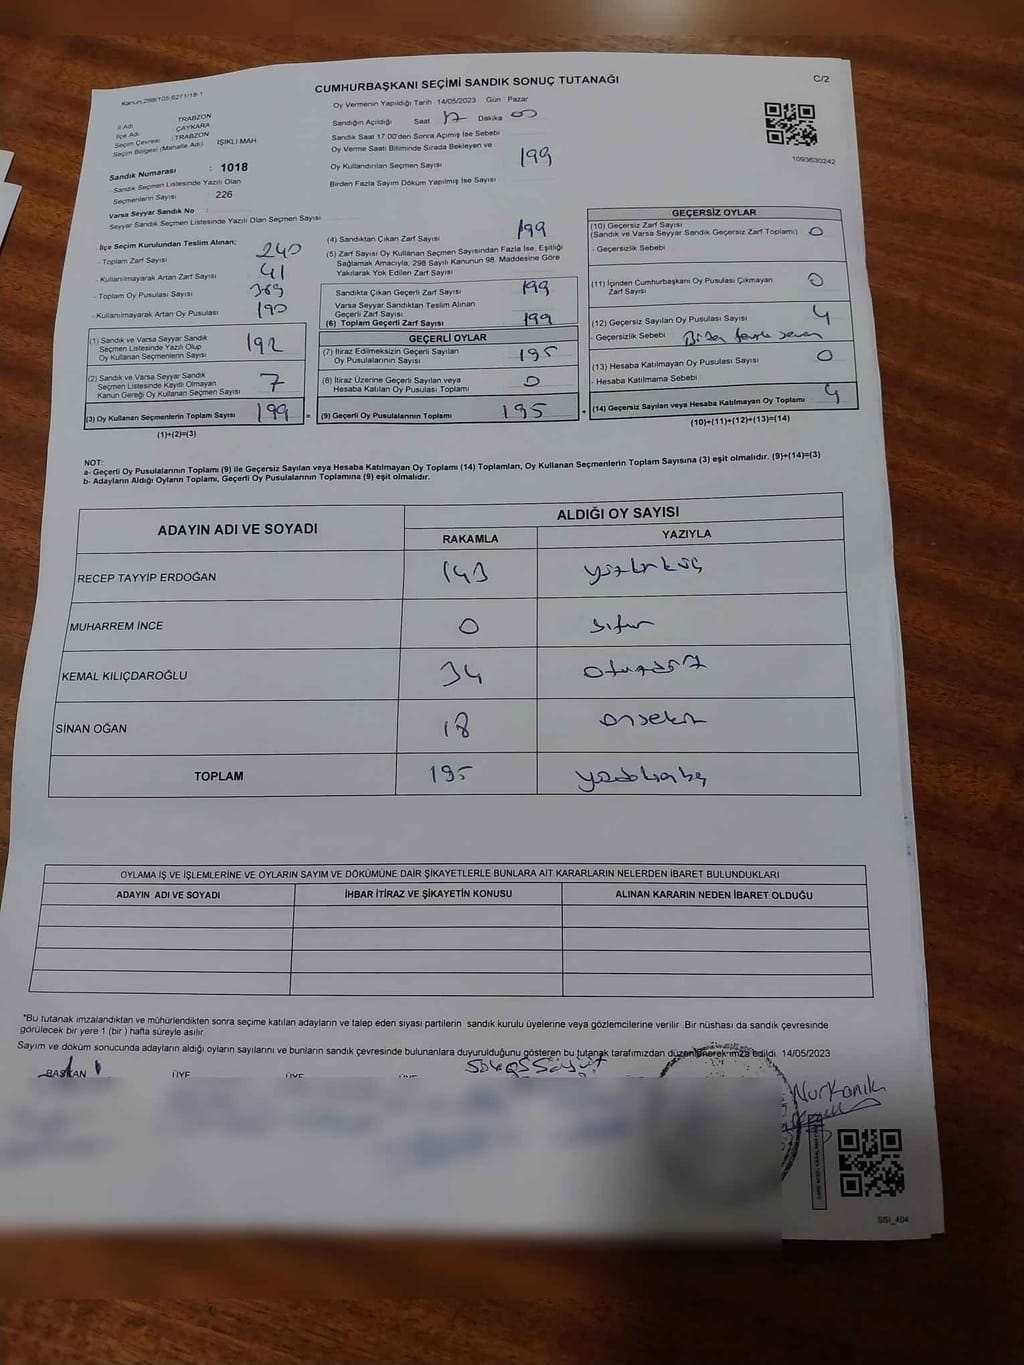 CUMHURBAŞKANI SEÇİMİ SANDIK SONUÇ TUTANAĞI
C/2
Kanun,298/105,6271/18-1
Oy Vermenin Yapıldığı Tarih 14/05/2023 Gün Pazar
İl Adı TRABZON
İlçe Adı : ÇAYKARA
Seçim Çevresi : TRABZON
Seçim Bölgesi (Mahalle Adı) IŞIKLI MAH
Sandığın Açıldığı Saat 17 Dakika 00
Sandık Saat 17.00'den Sonra Açımış İse Sebebi
Oy Verme Saati Bitiminde Sırada Bekleyen ve
Oy Kullandırılan Seçmen Sayısı 199
Birden Fazla Sayım Döküm Yapılmış İse Sayısı
1093630242
Sandık Numarası : 1018
- Sandık Seçmen Listesinde Yazılı Olan
Seçmenlerin Sayısı : 226
Varsa Seyyar Sandık No :
- Seyyar Sandık Seçmen Listesinde Yazılı Olan Seçmen Sayısı
İlçe Seçim Kurulundan Teslim Alınan;
- Toplam Zarf Sayısı 240
- Kullanılmayarak Artan Zarf Sayısı 41
- Toplam Oy Pusulası Sayısı 389
- Kullanılmayarak Artan Oy Pusulası 190
(1) Sandık ve Varsa Seyyar Sandık
Seçmen Listesinde Yazılı Olup
Oy Kullanan Seçmenlerin Sayısı 192
(2) Sandık ve Varsa Seyyar Sandık
Seçmen Listesinde Kayıtlı Olmayan
Kanun Gereği Oy Kullanan Seçmen Sayısı 7
(3) Oy Kullanan Seçmenlerin Toplam Sayısı 199 =
(1)+(2)=(3)
(4) Sandıktan Çıkan Zarf Sayısı 199
(5) Zarf Sayısı Oy Kullanan Seçmen Sayısından Fazla İse, Eşitliği
Sağlamak Amacıyla, 298 Sayılı Kanunun 98. Maddesine Göre
Yakılarak Yok Edilen Zarf Sayısı
Sandıkta Çıkan Geçerli Zarf Sayısı 199
Varsa Seyyar Sandıktan Teslim Alınan
Geçerli Zarf Sayısı
(6) Toplam Geçerli Zarf Sayısı 199
GEÇERLİ OYLAR
(7) İtiraz Edilmeksizin Geçerli Sayılan
Oy Pusulalarının Sayısı 195
(8) İtiraz Üzerine Geçerli Sayılan veya
Hesaba Katılan Oy Pusulası Toplamı 0
(9) Geçerli Oy Pusulalarının Toplamı 195 +
GEÇERSİZ OYLAR
(10) Geçersiz Zarf Sayısı
(Sandık ve Varsa Seyyar Sandık Geçersiz Zarf Toplamı) 0
- Geçersizlik Sebebi
(11) İçinden Cumhurbaşkanı Oy Pusulası Çıkmayan
Zarf Sayısı 0
(12) Geçersiz Sayılan Oy Pusulası Sayısı 4
- Geçersizlik Sebebi
(13) Hesaba Katılmayan Oy Pusulası Sayısı 0
- Hesaba Katılmama Sebebi
(14) Geçersiz Sayılan veya Hesaba Katılmayan Oy Toplamı 4
(10)+(11)+(12)+(13)=(14)
NOT:
a- Geçerli Oy Pusulalarının Toplamı (9) ile Geçersiz Sayılan veya Hesaba Katılmayan Oy Toplamı (14) Toplamları, Oy Kullanan Seçmenlerin Toplam Sayısına (3) eşit olmalıdır. (9)+(14)=(3)
b- Adayların Aldığı Oyların Toplamı, Geçerli Oy Pusulalarının Toplamına (9) eşit olmalıdır.
ADAYIN ADI VE SOYADI ALDIĞI OY SAYISI
RAKAMLA YAZIYLA
RECEP TAYYİP ERDOĞAN 143 yüzkırküç
MUHARREM İNCE 0 sıfır
KEMAL KILIÇDAROĞLU 34 otuzdört
SİNAN OĞAN 18 onsekiz
TOPLAM 195 yüzdoksanbeş
OYLAMA İŞ VE İŞLEMLERİNE VE OYLARIN SAYIM VE DÖKÜMÜNE DAİR ŞİKAYETLERLE BUNLARA AİT KARARLARIN NELERDEN İBARET BULUNDUKLARI
ADAYIN ADI VE SOYADI İHBAR İTİRAZ VE ŞİKAYETİN KONUSU ALINAN KARARIN NEDEN İBARET OLDUĞU
"Bu tutanak imzalandıktan ve mühürlendikten sonra seçime katılan adayların ve talep eden siyasi partilerin sandık kurulu üyelerine veya gözlemcilerine verilir. Bir nüshası da sandık çevresinde
görülecek bir yere 1 (bir ) hafta süreyle asılır.
Sayım ve döküm sonucunda adayların aldığı oyların sayılarını ve bunların sandık çevresinde bulunanlara duyurulduğunu gösteren bu tutanak tarafımızdan düzenlenerek imza edildi. 14/05/2023
BAŞKAN ÜYE ÜYE ÜYE
SSI_404